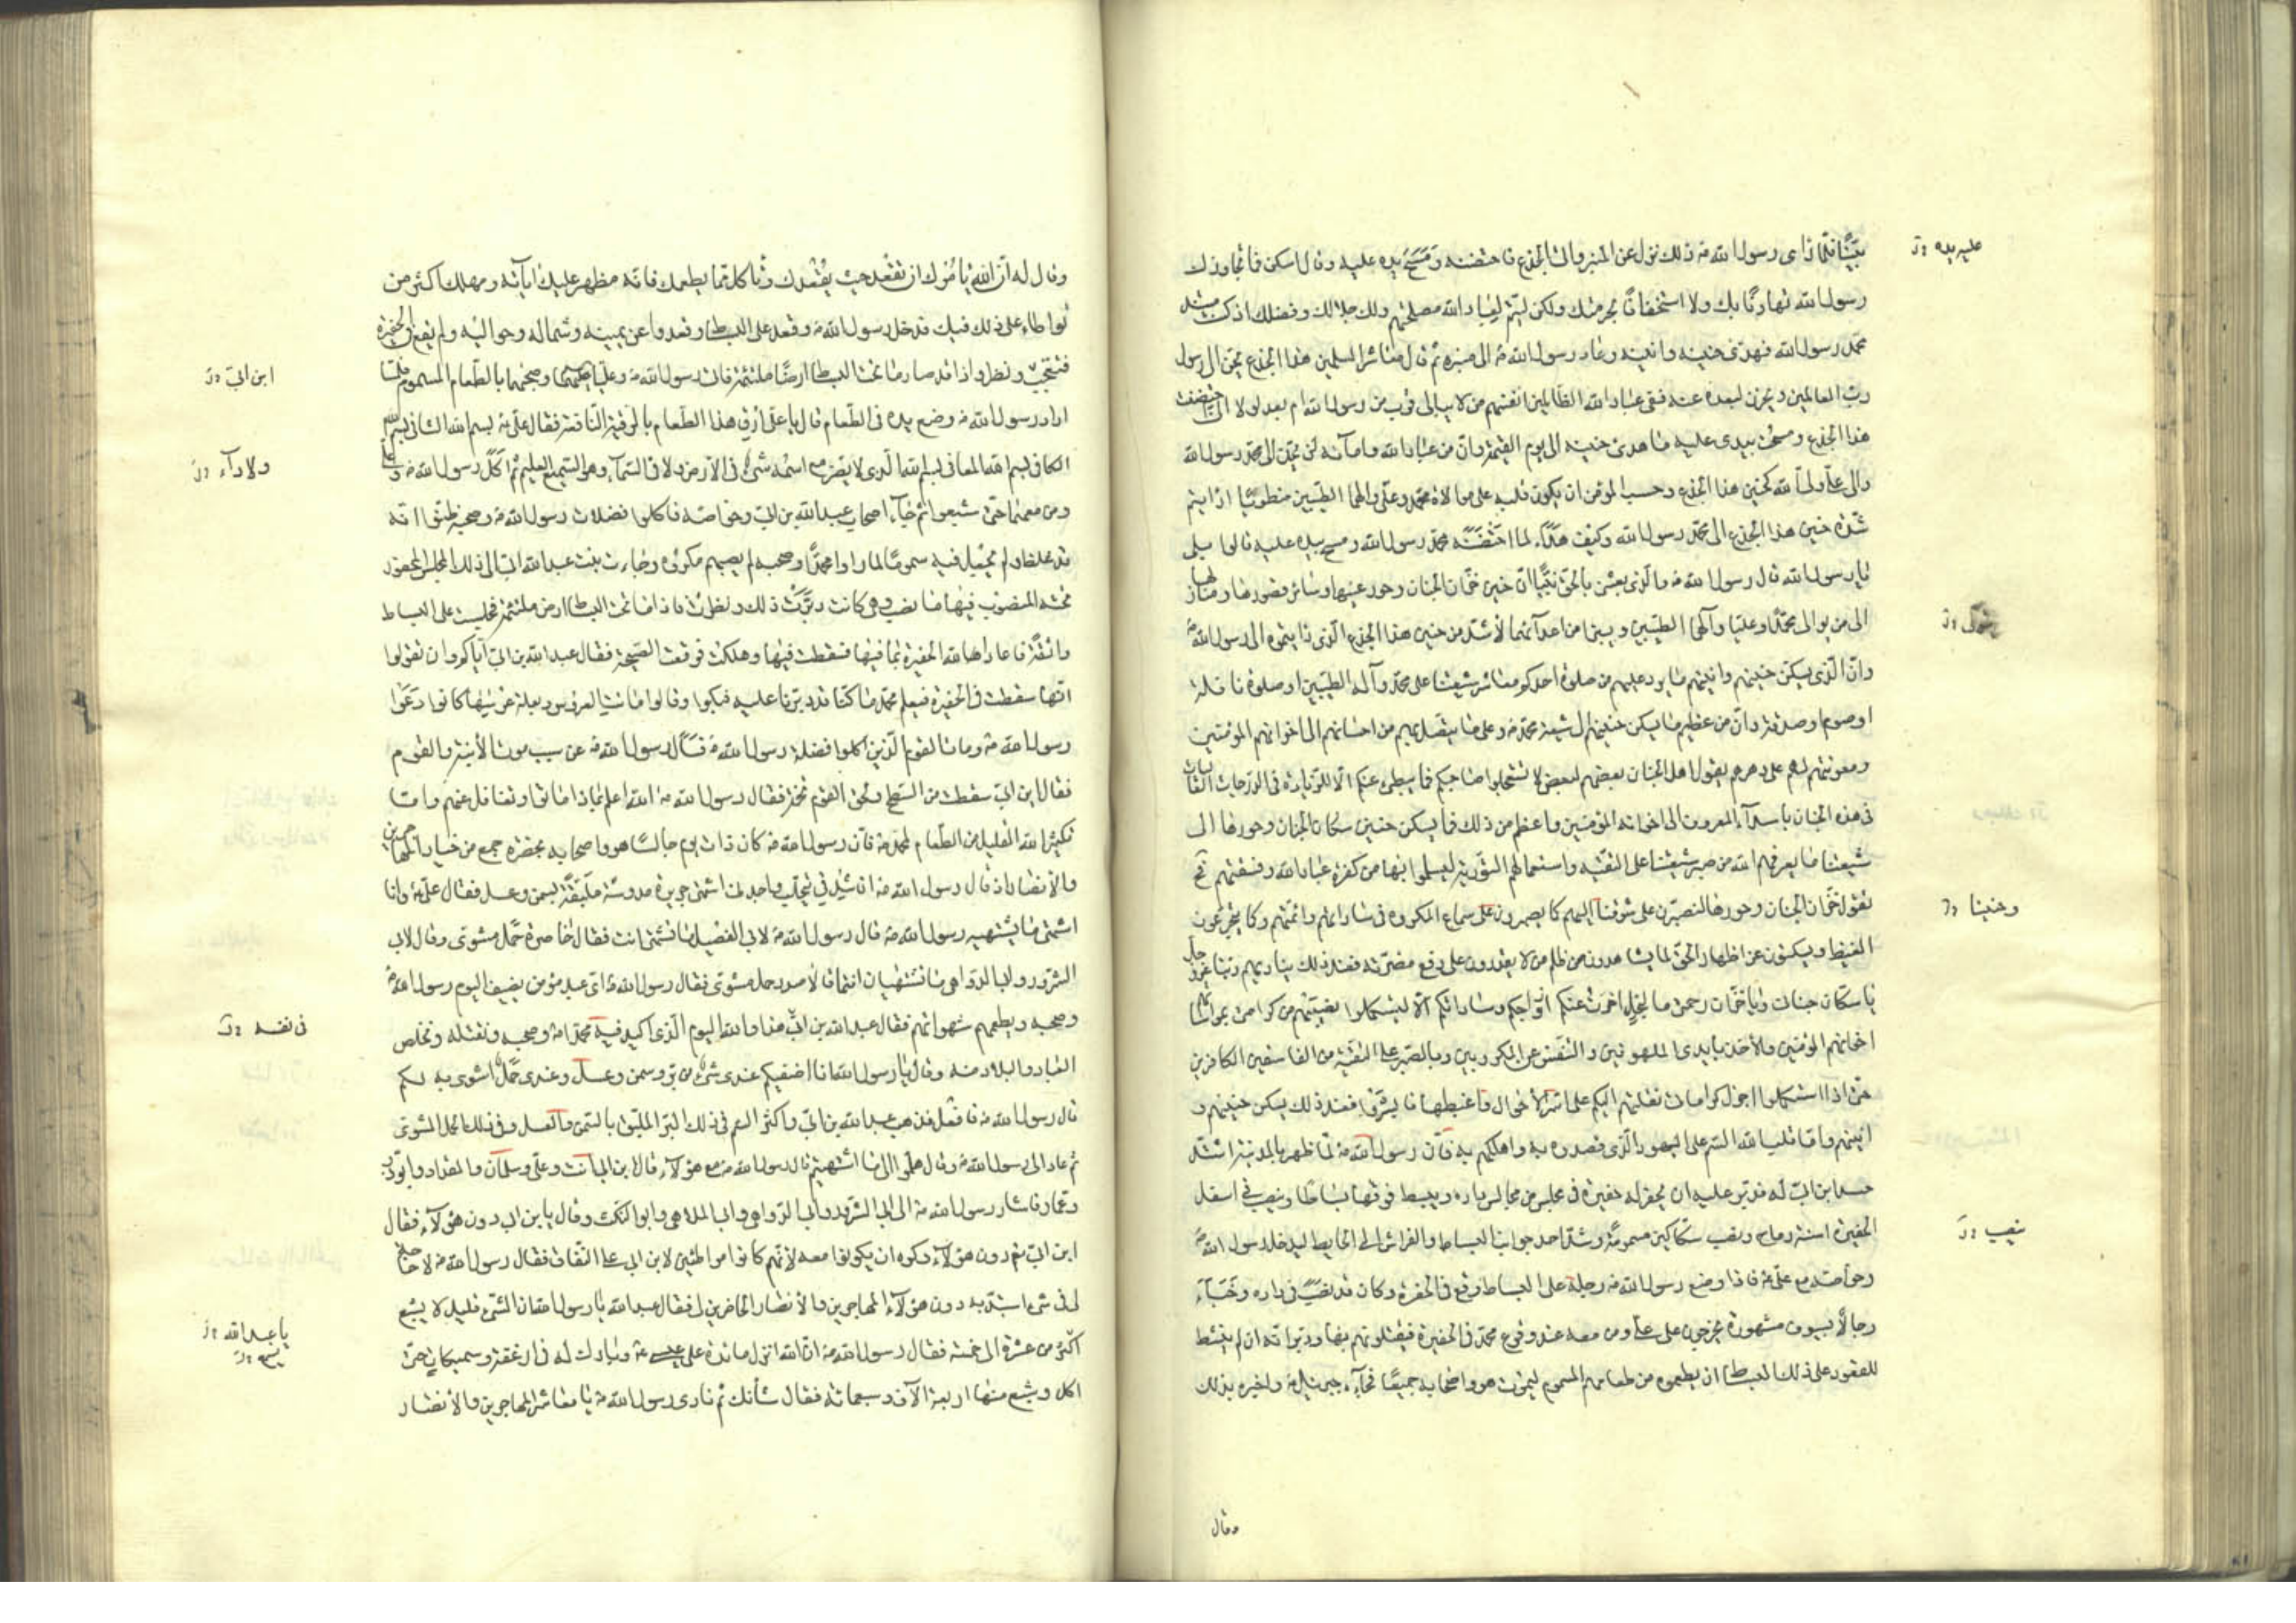 بيّنًا فلمّا رأى رسول الله ص ذلك نزل عن المنبر وأتى الجذع فاحتضنه ومَسَحَ يده عليه وقال اسكن فما تجاوزك
رسول الله تهاونًا بك ولا استخفافًا بحرمتك ولكن ليتمّ لعباد الله مصلحتهم ولك جلالك وفضلك اذ كنت مستند
محمّد رسول الله فهدئ حنينه وانينه وعاد رسول الله ص الى منبره ثم قال معاشر المسلمين هذا الجذع يحنّ الى رسول
ربّ العالمين ويحزن لبعده عنه ففى عباد الله الظالمين انفسهم من لا يبالى قرب من رسول الله ام بعد لولا انّى احتضنت
هذا الجذع ومسحت بيدى عليه ما هدئ حنينه الى يوم القيمة وانّ من عباد الله وامائه لمن يحنّ الى محمّد رسول الله
والى علىّ ولىّ الله كحنين هذا الجذع وحسب المؤمن ان يكون قلبه على موالاة محمّد وعلىّ والهما الطيّبين منطويًا ارأيتم
شدّة حنين هذا الجذع الى محمّد رسول الله وكيف هَدَأَ لما احتَضَنَه محمّد رسول الله ومسح بيده عليه قالوا بلى
يا رسول الله قال رسول الله ص والّذى بعثنى بالحقّ نبيًّا انّ حنين خزّان الجنان وحور عينها وسائر قصورها ومنازلها
الى من يوالى محمّدًا وعليّا وآلهما الطيّبين ويبرأ من اعدآئهما لأشدّ من حنين هذا الجذع الّذى رايتموه الى رسول الله ص
وانّ الّذى يسكن حنينهم وانينهم ما يرد عليهم من صلوة احدكم معاشر شيعتنا على محمّد وآله الطيّبين او صلوة نافلة
او صوم او صدقة وانّ من عظيم ما يسكن حنينهم الى شيعة محمّد ص وعلى ما يتّصل بهم من احسانهم الى اخوانهم المؤمنين
ومعونتهم لهم على دهرهم يقول اهل الجنان بعضهم لبعض لا تستعجلوا صاحبكم فما يبطئ عنكم الّا للزّيادة فى الدّرجات العاليات
فى هذه الجنان باسدآء المعروف الى اخوانه المؤمنين واعظم من ذلك فما يسكن حنين سكان الجنان وحورها الى
شيعتنا ما يعرّفهم الله من صبر شيعتنا على التقيّه واستعمالهم التّورية ليسلموا بها من كفرة عباد الله وفسقتهم فح
تقول خزّان الجنان وحورها لنصبرنّ على شوقنا اليهم كما يصبرون على سماع المكروه فى ساداتهم وائمّتهم وكما يتجرّعون
الغيظ ويسكتون عن اظهار الحقّ لما يشاهدون من ظلم من لا يقدرون على دفع مضرّته فعند ذلك يناديهم ربّنا عزّ وجلّ
يا سكّان جنانى ويا خزّان رحمتى ما لبخل اخّرت عنكم ازواجكم وساداتكم الّا ليستكملوا نصيبهم من كرامتى بمواساتهم
اخوانهم المؤمنين والأخذ بايدى الملهوفين والتّنفيس عن المكروبين وبالصّبر على التقيّة من الفاسقين الكافرين
حتى اذا استكملوا اجزل كراماتى نقلتهم اليكم على اسرّ الأحوال واغبطها فابشروا فعند ذلك يسكن حنينهم و
انينهم وامّا قلب الله السّم على اليهود الّذى قصدوه به واهلكهم به فانّ رسول الله ص لمّا ظهر بالمدينة اشتدّ
حسد ابن ابىّ له فدبّر عليه ان يحفر له حفيرة فى مجلس من مجالس داره ويبسط فوقها بساطًا وينصب فى اسفل
الحفيرة اسنّة رماح ونصب سكاكين مسمومة وشدّ احد جوانب البساط والفراش الى الحايط ليدخل رسول الله ص
وخواصّه مع علىّ ع فاذا وضع رسول الله ص رجله على البساط وقع فى الحفرة وكان قد نصَبَ فى داره وخَبَّأَ
رجالاً بسيوف مشهورة يخرجون على علىّ ومن معه عند وقوع محمّد فى الحفيرة فيقتلونهم بها ودبّر انّه ان لم ينشط
للقعود على ذلك البساط ان يطعموه من طعامهم المسموم ليموت هو واصحابه جميعًا فجآءه جبرئيل ع واخبره بذلك
وقال
عليه يده
وحنينا
ينصب
وقال له انّ الله يامُرُك ان تقعد حيث يُقْعدك وتأكل ممّا يطعمك فانّه مظهر عليك اياته ومهلك اكثر من
تواطاء على ذلك فيك فدخل رسول الله ص وقعد على البساط وقعدوا عن يمينه وشماله وحواليه ولم يقع فى الحفيرة
فتعجّب ونظر واذا قد صار ما تحت البساط ارضًا ملتئمة فاتى رسول الله ص وعليّا وصحبهما بالطّعام المسموم فلمّا
اراد رسول الله ص وضع يده فى الطّعام قال يا علىّ ارق هذا الطّعام بالرّقية النّافعة فقال علىّ ع بسم الله الشافى بسم الله
الكافى بسم الله المعافى بسم الله الّذى لا يضرّ مع اسمه شئ فى الأرض ولا فى السّمآء وهو السّميع العليم ثم اَكَلَ رسول الله ص وعلىّ
ومن معهما حتى شبعوا ثم جآء اصحاب عبد الله بن ابىّ وخواصّه فاكلوا فضلات رسول الله ص وصحبه ظنّوا انّه
قد غلط ولم يجعل فيه سمومًا لما راوا محمّدًا وصحبه لم يصبهم مكروه وجاءت بنت عبد الله الى ذلك المجلس المحفور
تحته المنصوب فيها ما نصب وهى كانت دبَّرَت ذلك ونظرت فاذا ما تحت البساط ارض ملتئمة فجلست على البساط
واثقة فاعاد الله الحفيرة بما فيها فسقطت فيها وهلكت فوقعت الصّيحة فقال عبد الله بن ابىّ ايّاكم وان تقولوا
انّها سقطت فى الحفيرة فيعلم محمّد ما كنّا قد دبّرنا عليه فبكوا وقالوا ماتت العروس وبعلة عرسها كانوا دَعَوا
رسول الله ص ومات القوم الّذين اكلوا فضلة رسول الله ص فَسَاَل رسول الله ص عن سبب موت الأبنة والقوم
فقال ابن ابىّ سقطت من السّطح ولحق القوم تخمة فقال رسول الله ص الله اعلم بماذا ماتوا وتغافل عنهم وامّا
تكثير الله القليل من الطّعام لمحمّد ص فانّ رسول الله ص كان ذات يوم جالسًا هو واصحابه بحضرة جمع من خيار المهاجرين
والأنصار اذ قال رسول الله ص انّ شدقى يتحلّب واجد لى اشتهى حريرة مدوسة ملبّقة بسمن وعسل فقال علىّ ع وانا
اشتهى ما يشتهيه رسول الله ص قال رسول الله ص لابى الفصيل ما تشتهى انت فقال خاصرة حَمَل مشوىّ وقال لابى
الشّرور ولابى الدّواهى ما تشتهيان انتما قالا صدر حمل مشوىّ فقال رسول الله ص اىّ عبد مؤمن يضيف اليوم رسول الله ص
وصحبه ويطعمهم شهواتهم فقال عبد الله بن ابىّ هذا والله اليوم الّذى اكيد فيه محمّدًا ص وصحبه ونقتله ونخلّص
العباد والبلاد منه وقال يا رسول الله انا اضيفكم عندى شئ من برّ وسمن وعسل وعندى حَمَل اشوى به لكم
قال رسول الله ص فافعل فذهب عبد الله بن ابىّ واكثر السّم فى ذلك البرّ الملبّق بالسّمن والعسل وفى ذلك الحمل المشوىّ
ثم عاد الى رسول الله ص وقال هلمّوا الى ما اشتهيتم قال رسول الله ص مع هؤلآء قال ابن ابىّ انت وعلىّ وسلمان والمقداد وابوذر
وعمّار فاشار رسول الله ص الى ابى الشّرور وابى الدّواهى وابى الملاهى وابو النكث وقال يا بن ابىّ دون هؤلآء فقال
ابن ابىّ نعم دون هؤلآء وكره ان يكونوا معه لأنّهم كانوا مواطئين لابن ابىّ على النّفاق فقال رسول الله ص لا حاجة
لى فى شئ استبدّ به دون هؤلآء المهاجرين والأنصار الحاضرين لى فقال عبد الله يا رسول الله انّ الشّئ قليل لا يشبع
اكثر من عشرة الى خمسة فقال رسول الله ص انّ الله انزل مائدة على عيسى ع وبارك له فى ارغفة وسميكات حتى
اكل وشبع منها اربعة الآف وسبعمائة فقال شأنك ثم نادى رسول الله ص يا معاشر المهاجرين والأنصار
ابن ابىّ
ولا دآء
فى نفسه
يا عبد الله